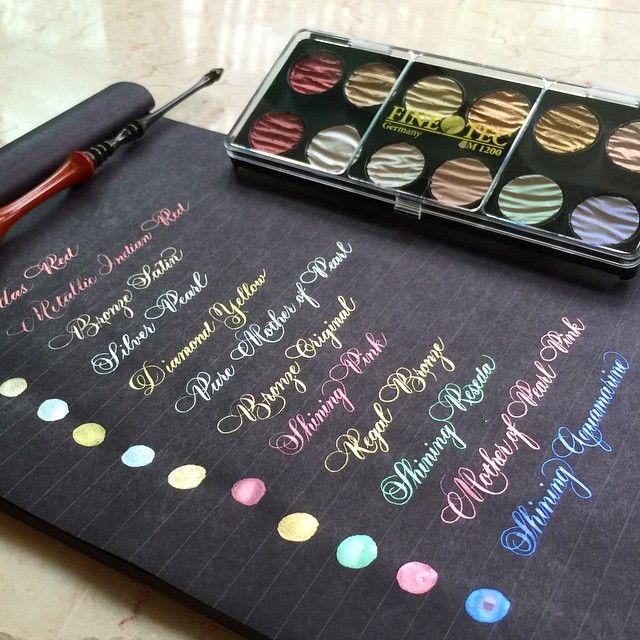 FINE TEC
Germany
M 1200
Red
Metallic Indian Red
Bronze Satin
Silver Pearl
Diamond Yellow
Pure Mother of Pearl
Bronze Original
Shining Pink
Royal Bronze
Shining Reseda
Mother of Pearl Pink
Shining Aquamarine